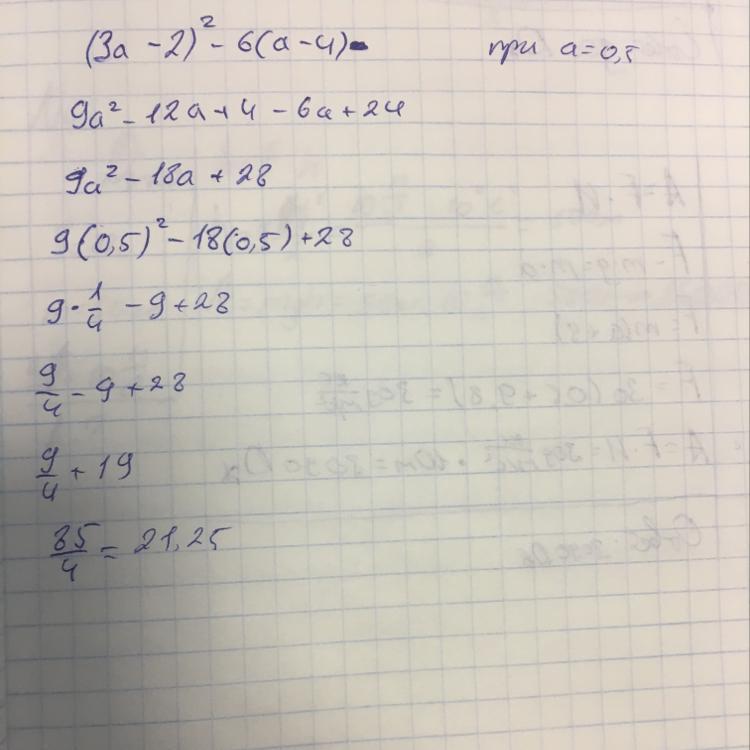 (3a - 2)² - 6(a - 4) при a = 0,5
9a² - 12a + 4 - 6a + 24
9a² - 18a + 28
9(0,5)² - 18(0,5) + 28
9 · 1/4 - 9 + 28
9/4 - 9 + 28
9/4 + 19
85/4 = 21,25